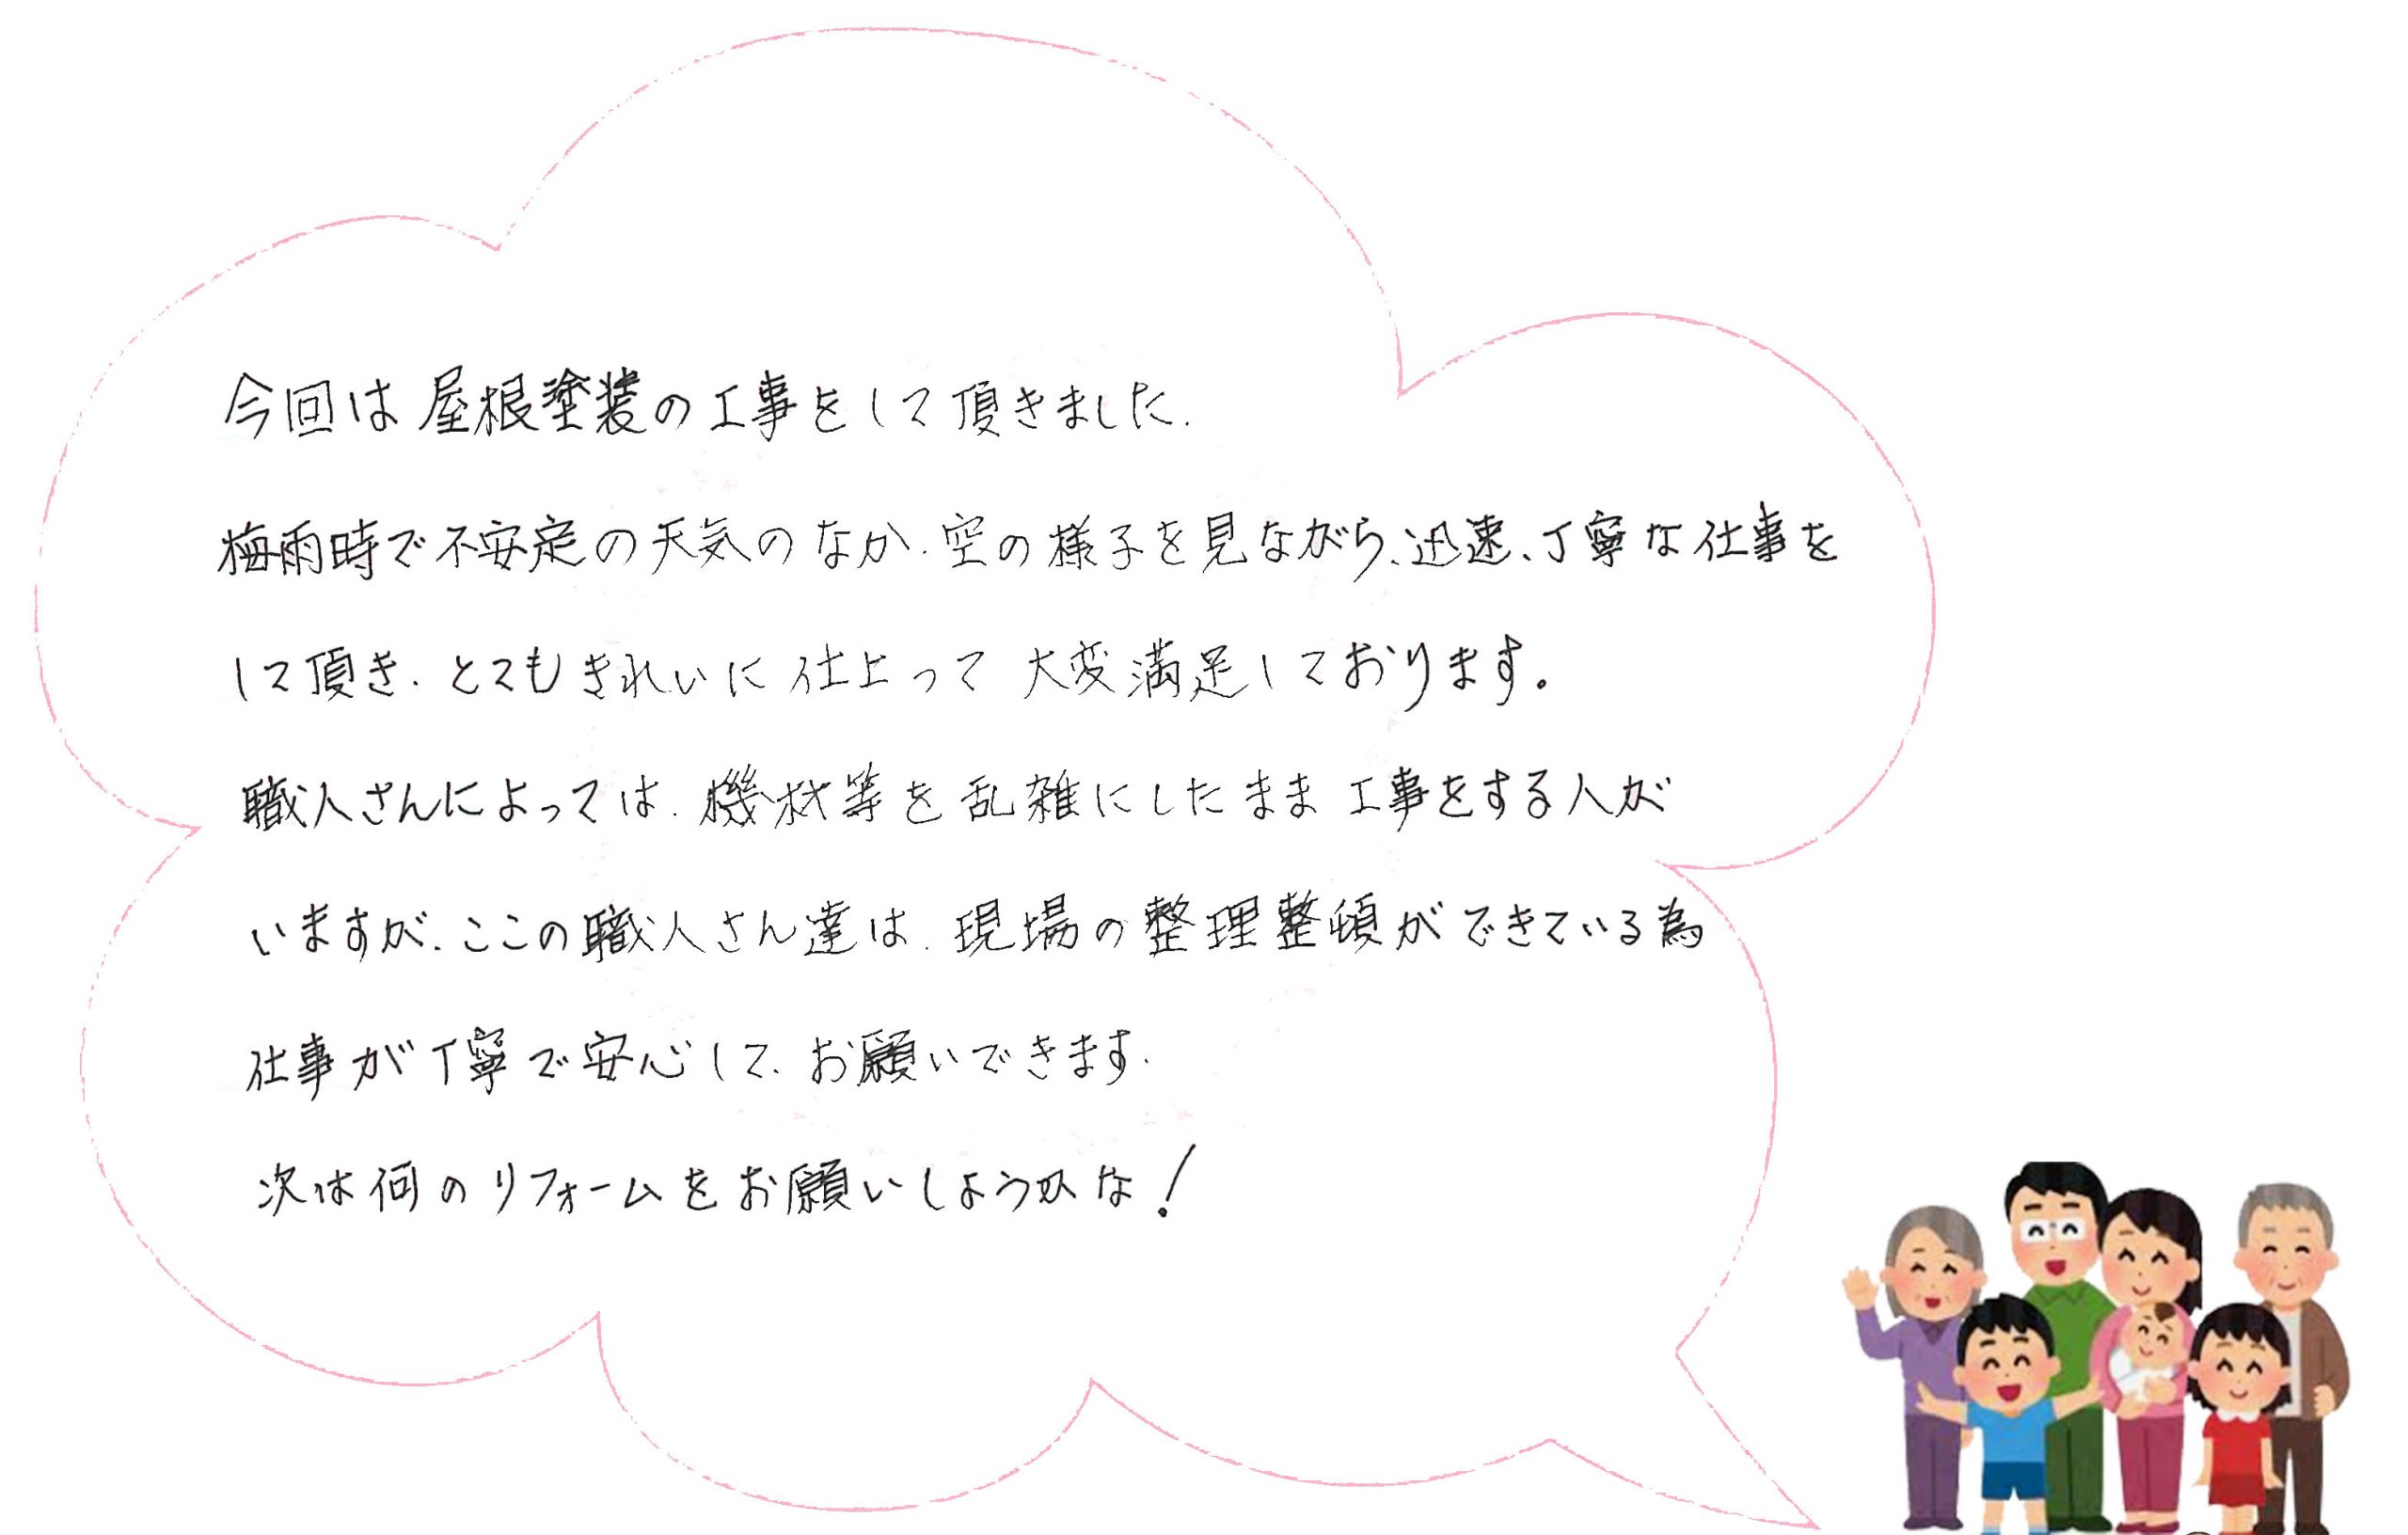 今回は屋根塗装の工事をして頂きました.
梅雨時で不安定の天気のなか.空の様子を見ながら、迅速、丁寧な仕事を
して頂き.とてもきれいに仕上って大変満足しております。
職人さんによっては.機材等を乱雑にしたまま工事をする人が
いますが.ここの職人さん達は.現場の整理整頓ができている為
仕事が丁寧で安心して.お願いできます.
次は何のリフォームをお願いしようかな!